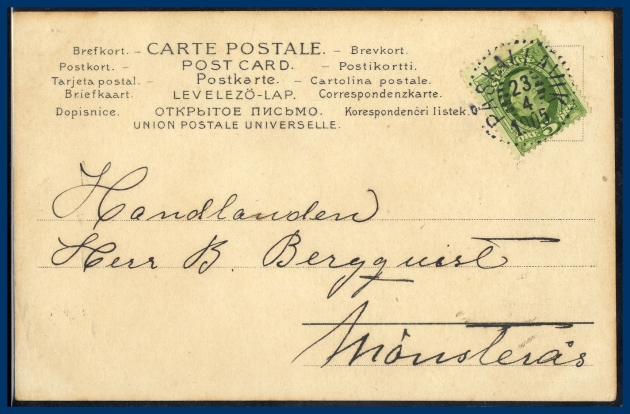 Brefkort. – CARTE POSTALE. – Brevkort.
Postkort. – POST CARD. – Postikortti.
Tarjeta postal. – Postkarte. – Cartolina postale.
Briefkaart. LEVELEZÖ-LAP. Correspondenzkarte.
Dopisnice. ОТКРЫТОЕ ПИСЬМО. Korespondenčni listek.
UNION POSTALE UNIVERSELLE.
PÅSKALLAVIK
23
4
1905
5
Handlanden
Herr B. Bergquist
Mönsterås